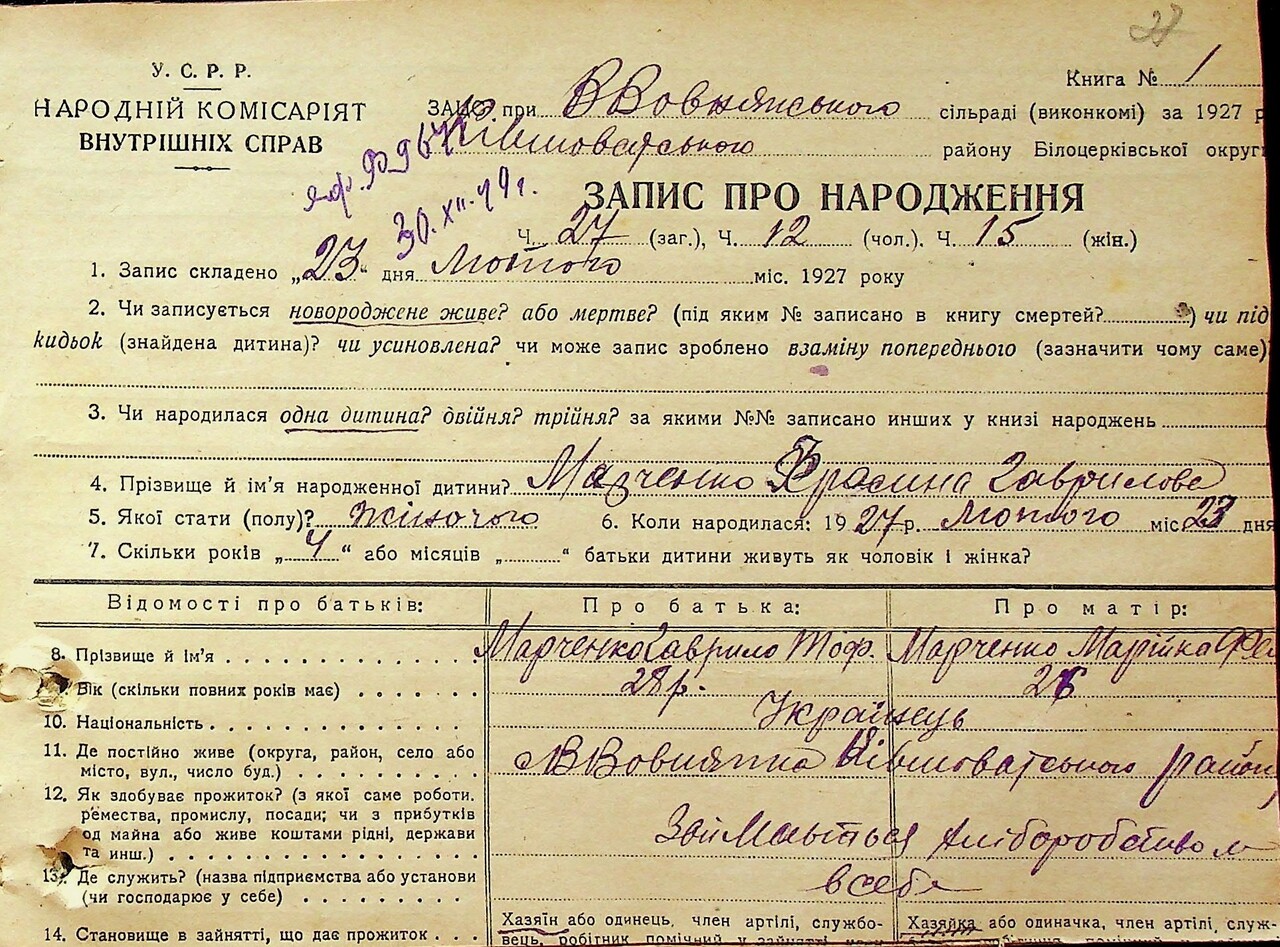 28
У. С. Р. Р.
НАРОДНІЙ КОМІСАРІЯТ
ВНУТРІШНІХ СПРАВ
Книга № 1
ЗАГС при ВВовнянського сільраді (виконкомі) за 1927 р
Ківшоватського району Білоцерківської округи
30.XII.49г.
ЗАПИС ПРО НАРОДЖЕННЯ
Ч. 27 (заг.), Ч. 12 (чол.). Ч. 15 (жін.)
1. Запис складено „23“ дня Лютого міс. 1927 року
2. Чи записується новороджене живе? або мертве? (під яким № записано в книгу смертей? ) чи під
кидьок (знайдена дитина)? чи усиновлена? чи може запис зроблено взаміну попереднього (зазначити чому саме)
3. Чи народилася одна дитина? двійня? трійня? за якими №№ записано инших у книзі народжень
4. Прізвище й ім’я народженної дитини? Марченко Фросина Гаврилове
5. Якої стати (полу)? жіночого 6. Коли народилася: 1927 р. Лютого міс 23 дня
7. Скільки років „4“ або місяців „ “ батьки дитини живуть як чоловік і жінка?
Відомості про батьків: Про батька: Про матір:
8. Прізвище й ім’я Марченко Гаврило Тоф. Марченко Марійка
Вік (скільки повних років має) 28 р. 26
10. Національність Українець
11. Де постійно живе (округа, район, село або
місто, вул., число буд.) ВВовнянка Ківшоватського район
12. Як здобуває прожиток? (з якої саме роботи.
ремества, промислу, посади; чи з прибутків
од майна або живе коштами рідні, держави
та инш.) Займається Хліборобством
13. Де служить? (назва підприємства або установи
(чи господарює у себе) в себе
14. Становище в зайнятті, що дає прожиток
Хазяїн або одинець, член артілі, службо-
вець, робітник помічний у зайнятті
Хазяйка або одиначка, член артілі, служ-